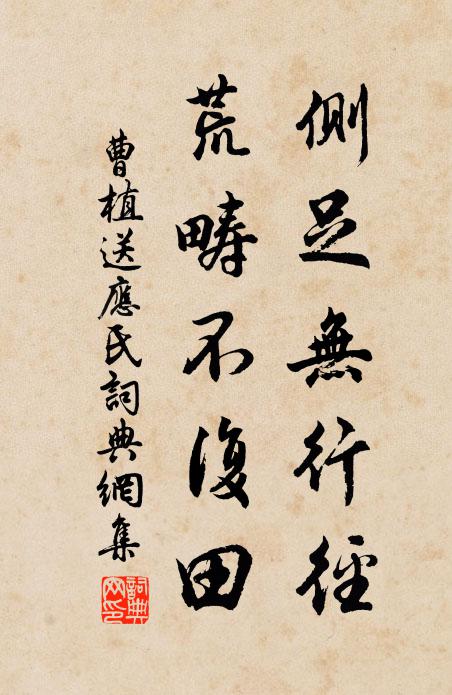 側足無行徑
荒疇不復田
曹植送應氏詞典網集
詞典網印